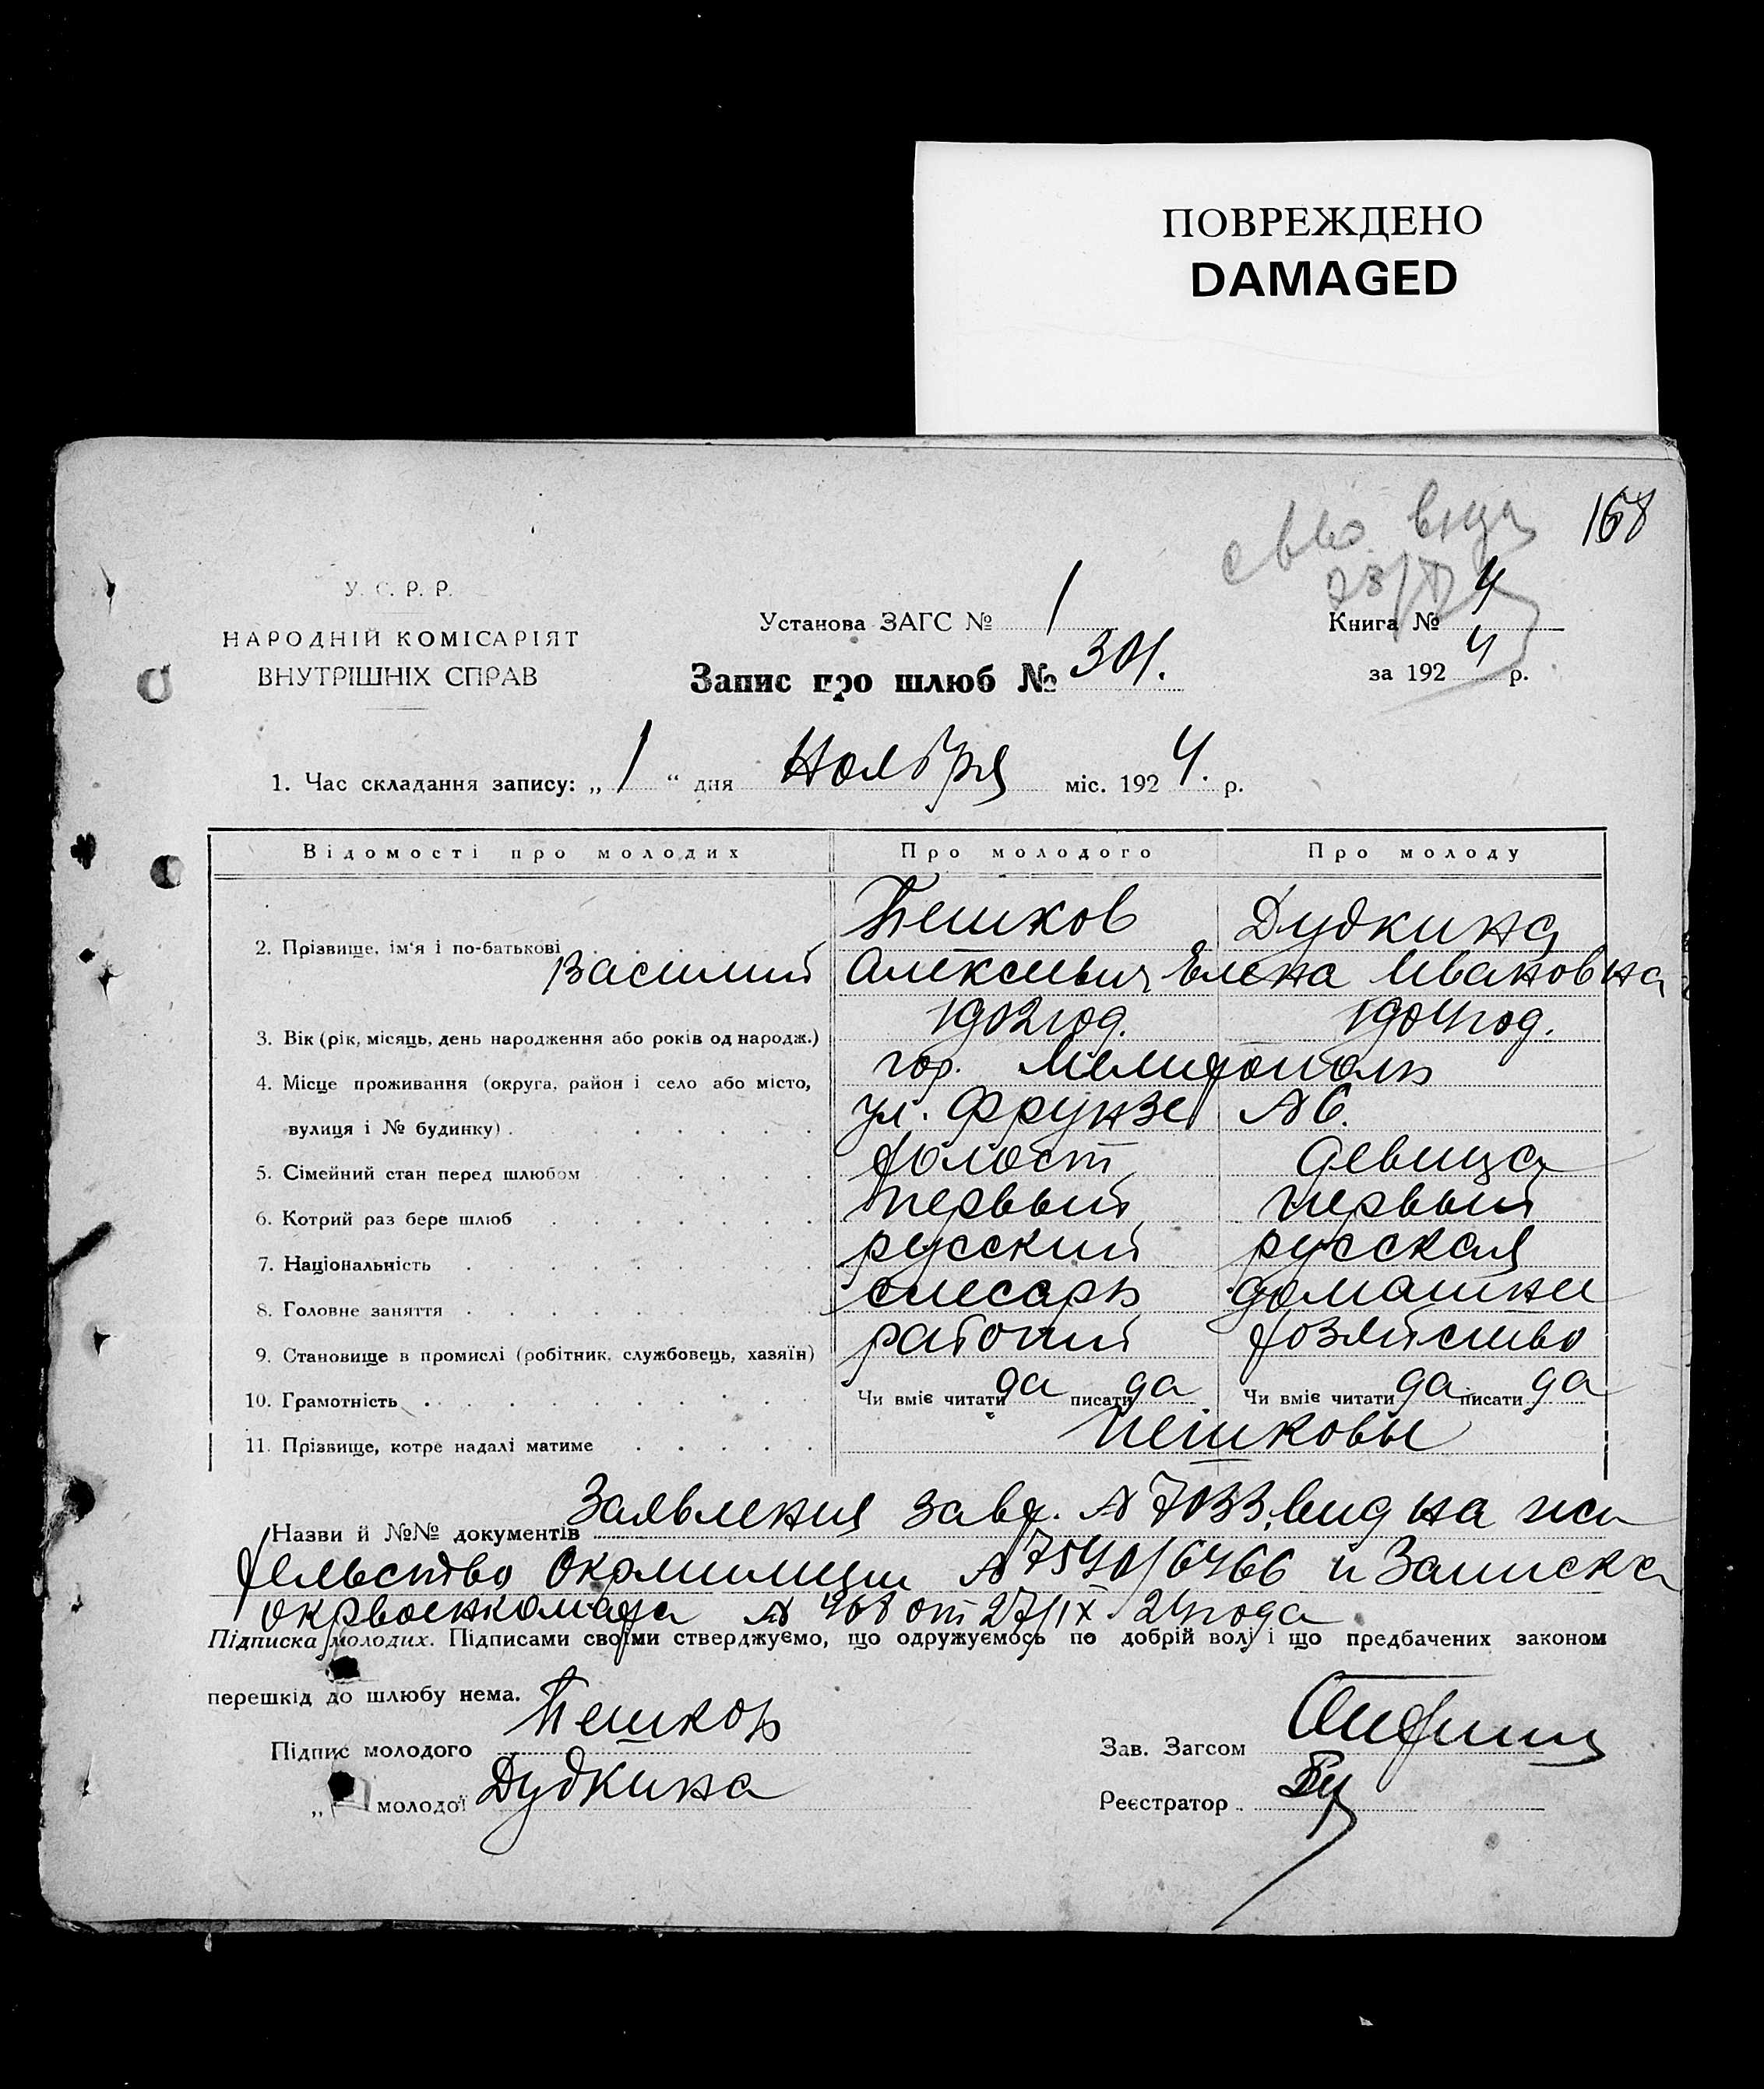 ПОВРЕЖДЕНО
DAMAGED
168
У. С. Р. Р.
НАРОДНІЙ КОМІСАРІЯТ
ВНУТРІШНІХ СПРАВ
Установа ЗАГС № 1
Книга № 4
Запис про шлюб № 301.
за 1924 р.
1. Час складання запису: „1“ дня Ноября міс. 1924. р.
Відомості про молодих Про молодого Про молоду
Пешков Дудкина
2. Прізвище, ім'я і по-батькові Василий Алексеевич Елена Ивановна
3. Вік (рік, місяць, день народження або років од народж.) 1902 год. 1904 год.
4. Місце проживання (округа, район і село або місто, гор. Мелитополь
вулиця і № будинку) ул. Фрунзе № 6.
5. Сімейний стан перед шлюбом холост девица
6. Котрий раз бере шлюб первый первый
7. Національність русский русская
8. Головне заняття слесарь домашнее
9. Становище в промислі (робітник, службовець, хазяїн) рабочий хозяйство
10. Грамотність Чи вміє читати да писати да Чи вміє читати да писати да
11. Прізвище, котре надалі матиме Пешковы
Назви й №№ документів Заявления № 7033, вид на жи
тельство Окрмилиции № 7540/6466 и Записка
окрвоенкомата № 408 от 27/IX 24 года
Підписка молодих. Підписами своїми стверджуємо, що одружуємось по добрій волі і що предбачених законом
перешкід до шлюбу нема.
Підпис молодого Пешков
Зав. Загсом
„ молодої Дудкина
Реєстратор